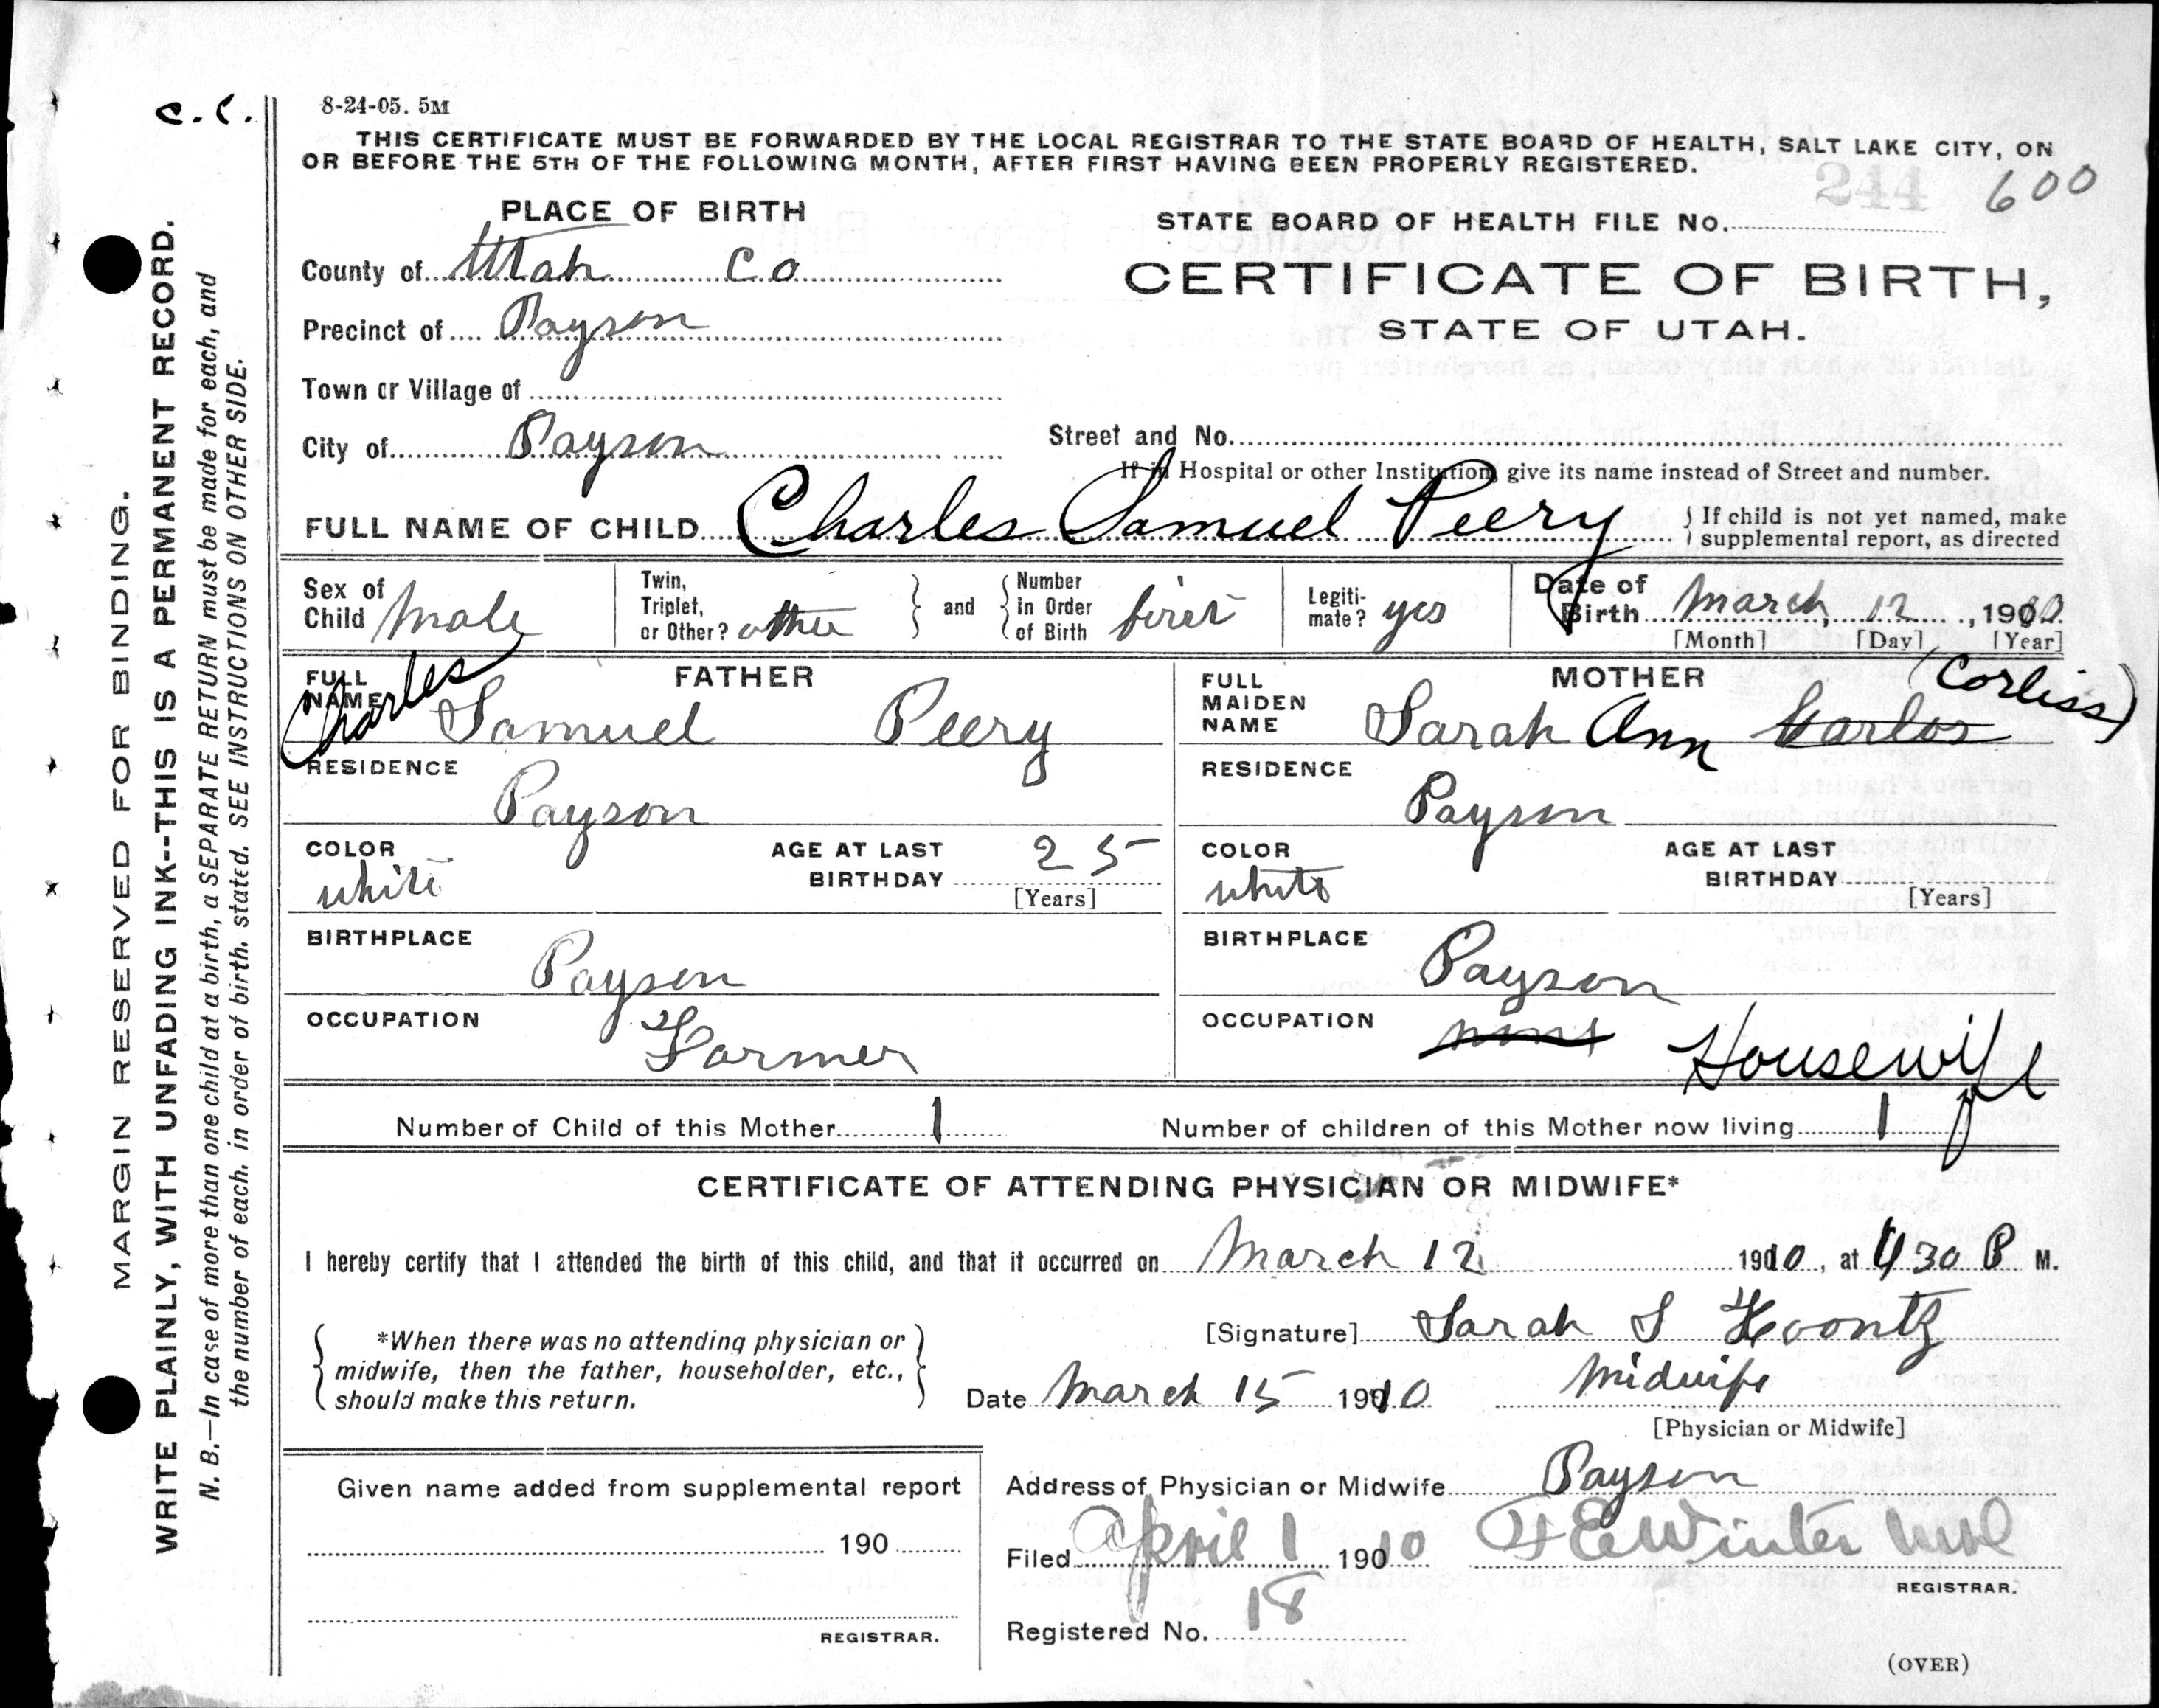 c.c.
8-24-05. 5M
THIS CERTIFICATE MUST BE FORWARDED BY THE LOCAL REGISTRAR TO THE STATE BOARD OF HEALTH, SALT LAKE CITY, ON
OR BEFORE THE 5TH OF THE FOLLOWING MONTH, AFTER FIRST HAVING BEEN PROPERLY REGISTERED.
244 600
PLACE OF BIRTH
STATE BOARD OF HEALTH FILE No.
County of Utah Co
CERTIFICATE OF BIRTH,
STATE OF UTAH.
Precinct of Payson
Town or Village of
City of Payson
Street and No.
If in Hospital or other Institution, give its name instead of Street and number.
FULL NAME OF CHILD Charles Samuel Peery
If child is not yet named, make
supplemental report, as directed
Sex of
Child Male
Twin,
Triplet,
or Other? other
and
Number
in Order
of Birth first
Legiti-
mate? yes
Date of
Birth March, 12, 1910
[Month] [Day] [Year]
FATHER
FULL
NAME
Charles Samuel Peery
RESIDENCE
Payson
COLOR
white
AGE AT LAST
BIRTHDAY 25
[Years]
BIRTHPLACE
Payson
OCCUPATION
Farmer
MOTHER
FULL
MAIDEN
NAME
Sarah Ann Carlos (Corliss)
RESIDENCE
Payson
COLOR
white
AGE AT LAST
BIRTHDAY
[Years]
BIRTHPLACE
Payson
OCCUPATION
Housewife
Number of Child of this Mother 1
Number of children of this Mother now living 1
CERTIFICATE OF ATTENDING PHYSICIAN OR MIDWIFE*
I hereby certify that I attended the birth of this child, and that it occurred on March 12 1910, at 4 30 P M.
*When there was no attending physician or
midwife, then the father, householder, etc.,
should make this return.
[Signature] Sarah S Koontz
Date March 15 1910 Midwife
[Physician or Midwife]
Given name added from supplemental report
190
REGISTRAR.
Address of Physician or Midwife Payson
Filed April 1 1910 F E Winter
REGISTRAR.
Registered No. 18
(OVER)
MARGIN RESERVED FOR BINDING.
WRITE PLAINLY, WITH UNFADING INK--THIS IS A PERMANENT RECORD.
N. B.—In case of more than one child at a birth, a SEPARATE RETURN must be made for each, and
the number of each, in order of birth, stated. SEE INSTRUCTIONS ON OTHER SIDE.